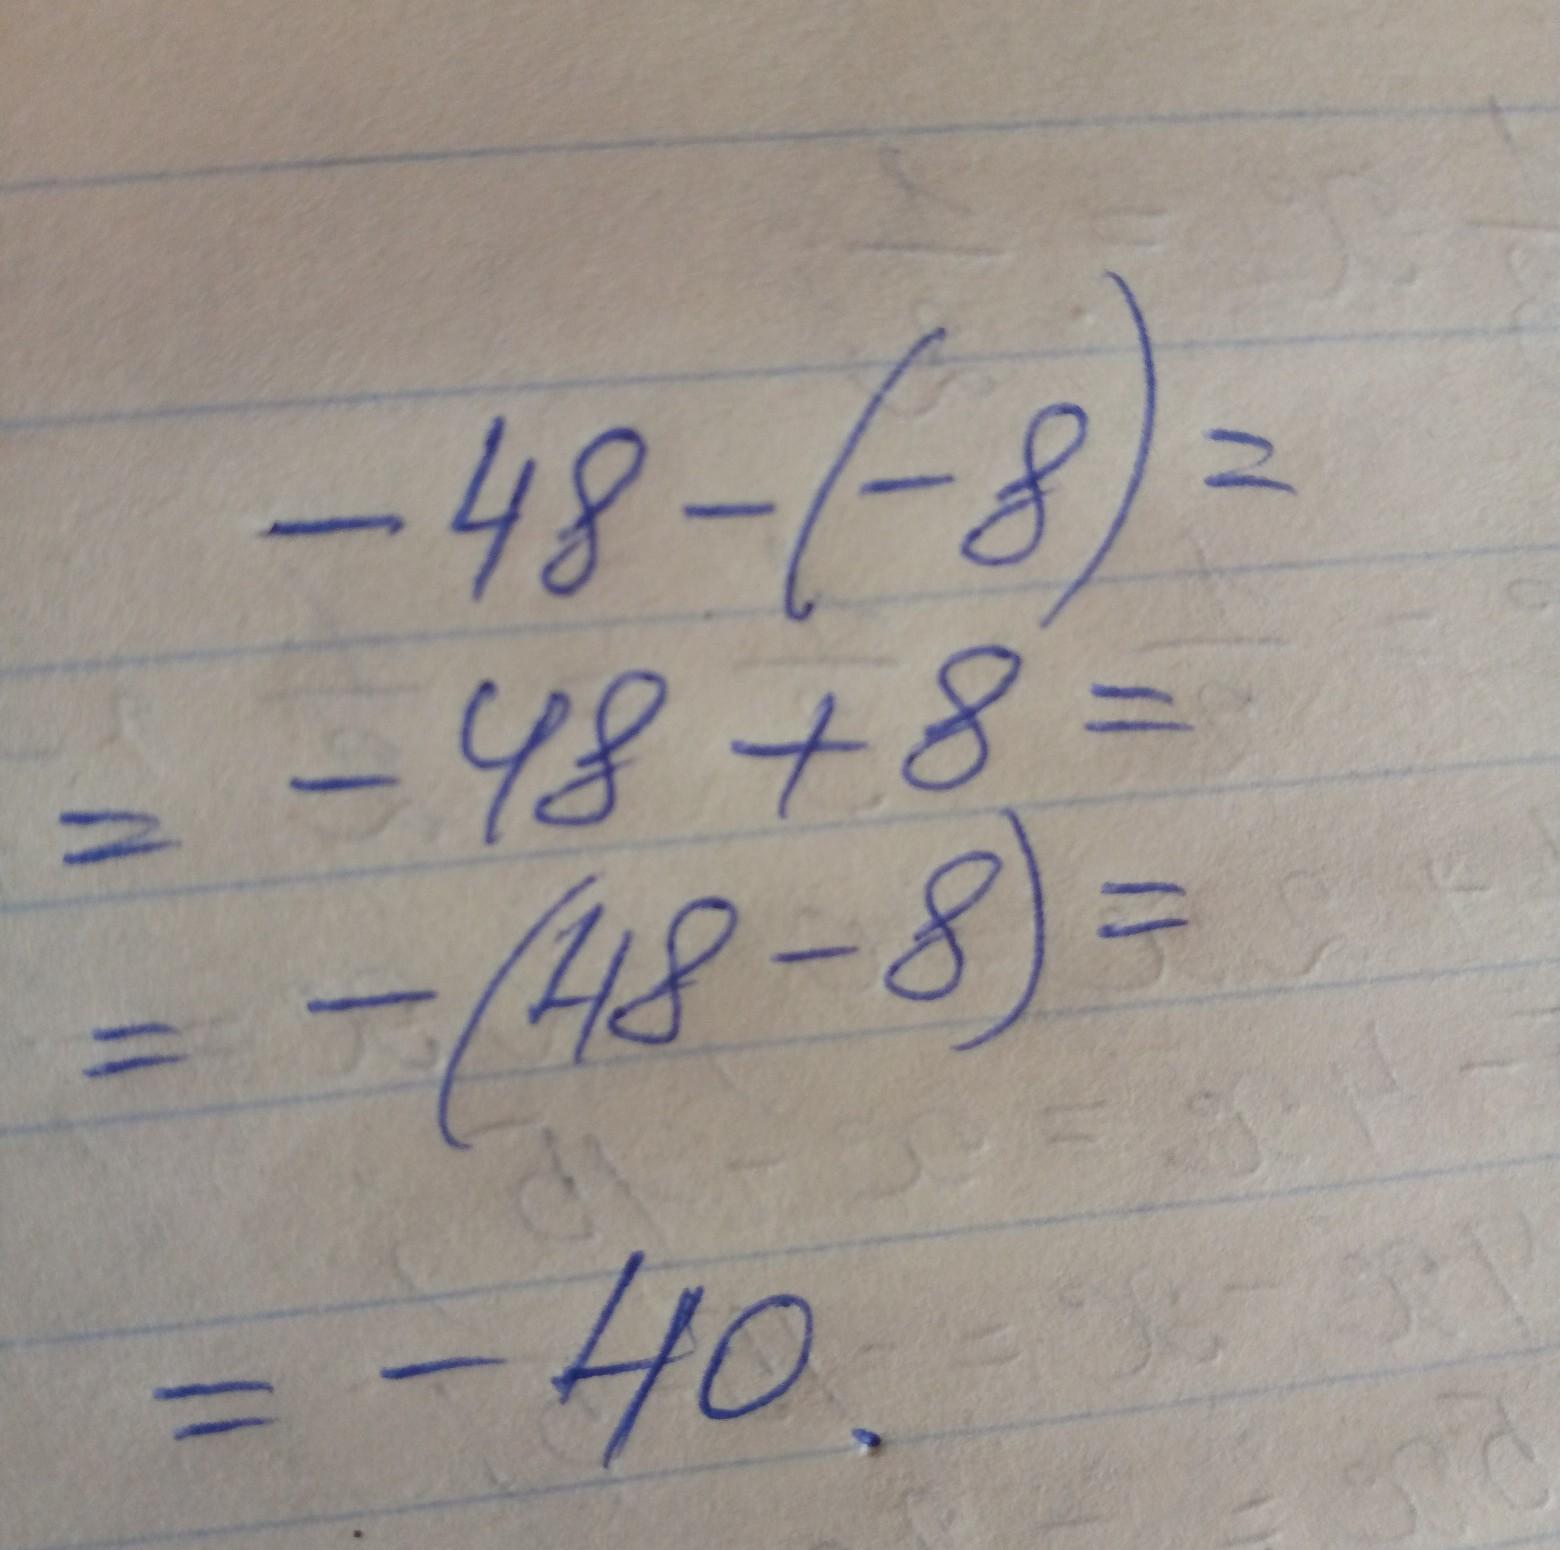 - 48 - (- 8) =
= - 48 + 8 =
= - (48 - 8) =
= - 40.